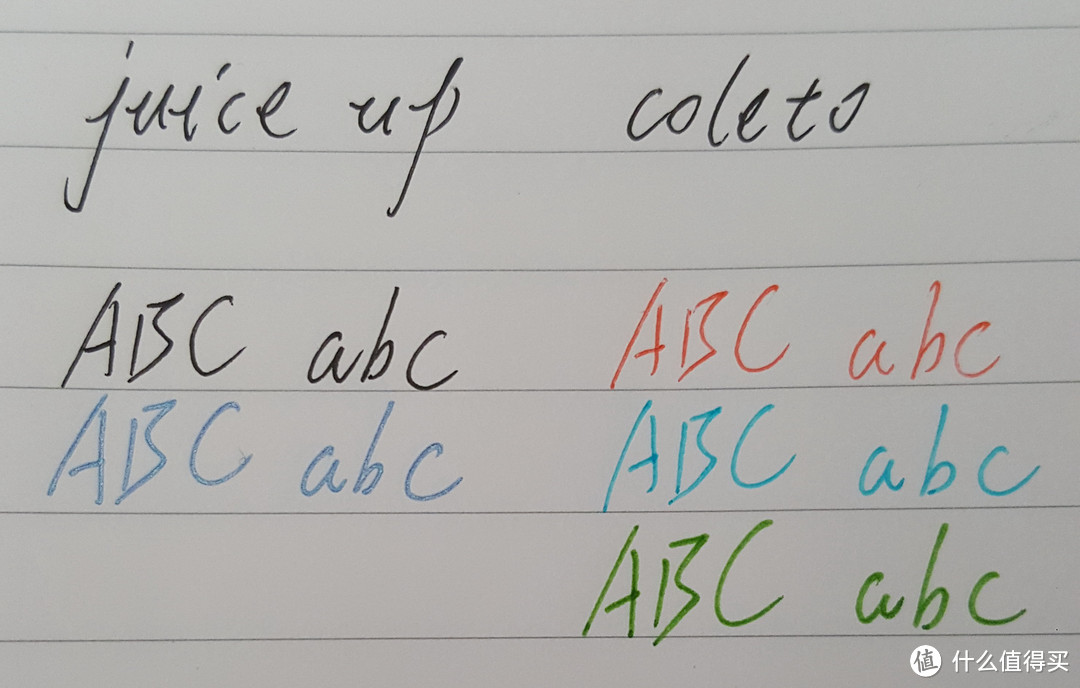 juice up coleto
ABC abc ABC abc
ABC abc ABC abc
ABC abc
值 什么值得买